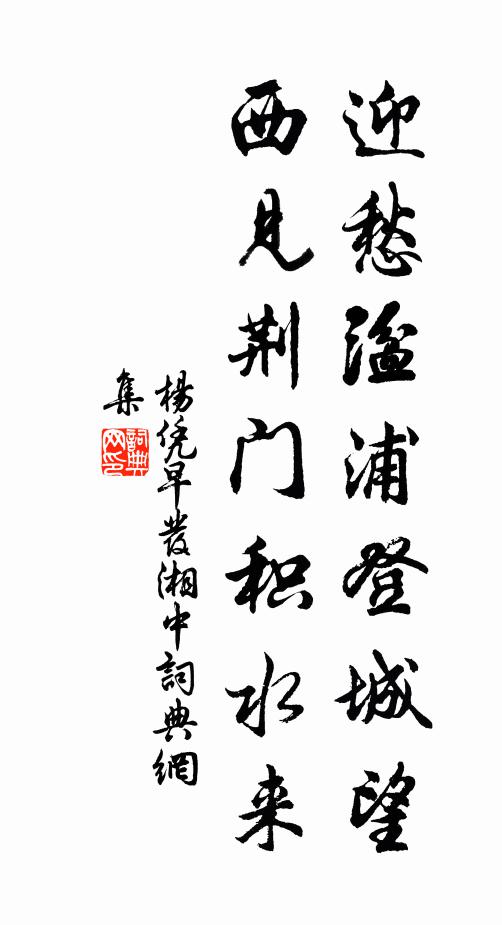 迎愁湓浦登城望
西见荆门积水来
楊凭早發湘中詞典網
集
詞典
网印